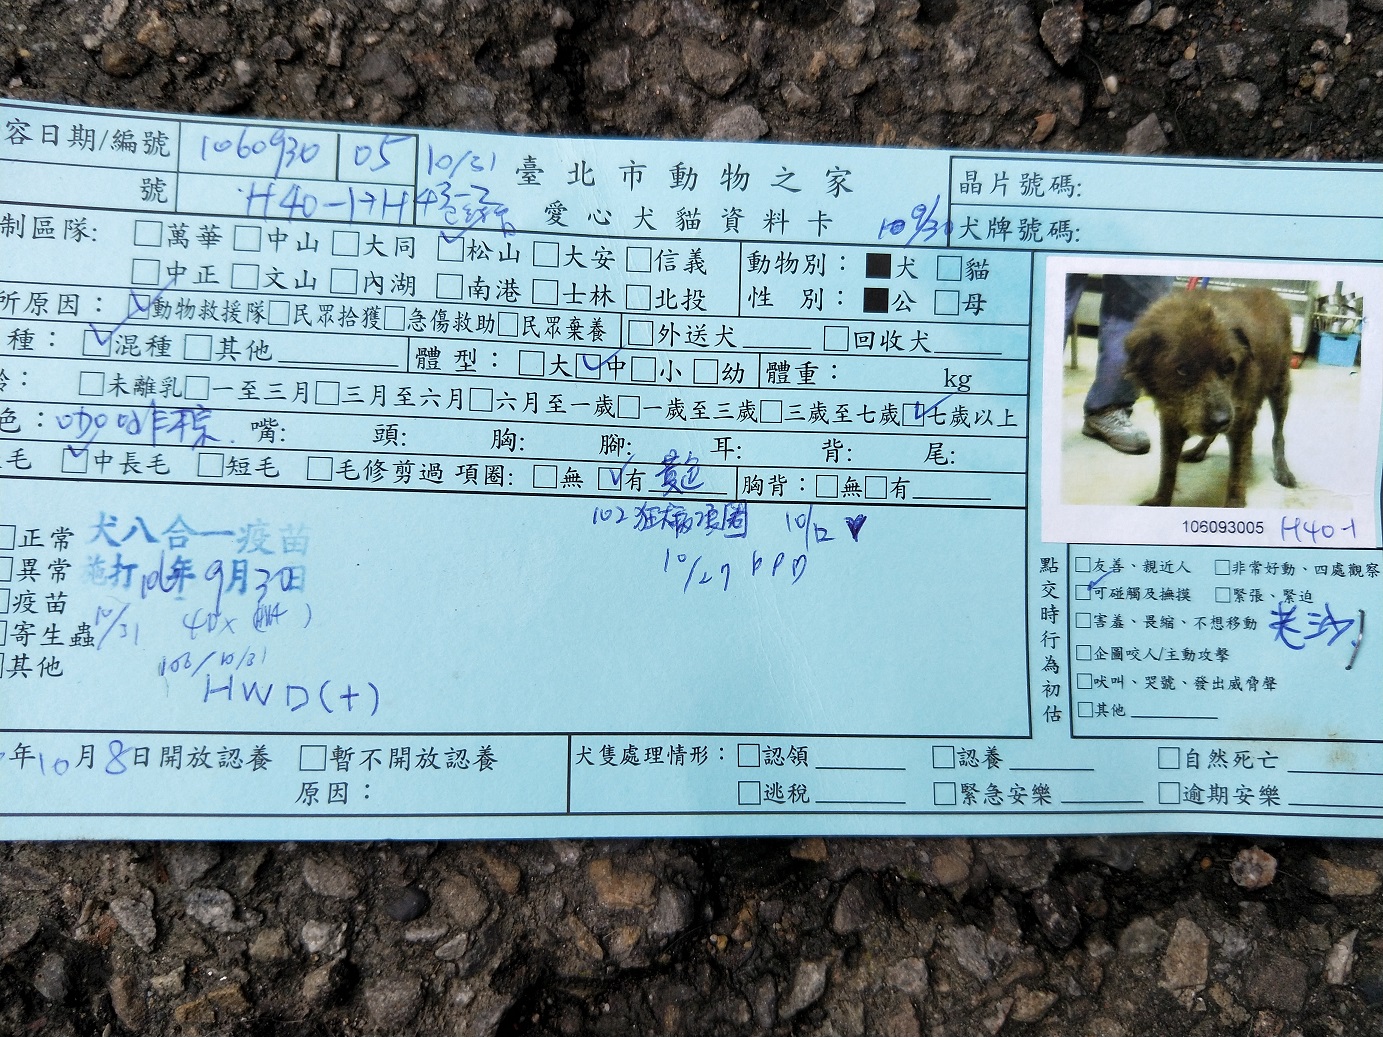 容日期/編號 1060930 05 10/31
臺北市動物之家
晶片號碼:
號 H40-1→H43-2
愛心犬貓資料卡
犬牌號碼:
制區隊: □萬華 □中山 □大同 □松山 □大安 □信義
動物別: ■犬 □貓
□中正 □文山 □內湖 □南港 □士林 □北投
性 別: ■公 □母
所原因: □動物救援隊 □民眾拾獲 □急傷救助 □民眾棄養 □外送犬 □回收犬
種: □混種 □其他 體 型: □大 □中 □小 □幼 體重: kg
齡: □未離乳 □一至三月 □三月至六月 □六月至一歲 □一歲至三歲 □三歲至七歲 □七歲以上
色: 咖啡棕 嘴: 頭: 胸: 腳: 耳: 背: 尾:
毛 □中長毛 □短毛 □毛修剪過 項圈: □無 □有 黃色 胸背: □無 □有
102 狂犬病項圈 10/12
10/27 PPD
□正常 犬八合一疫苗
□異常 施打106年9月30日
□疫苗
□寄生蟲 10/31 40X
□其他 106/10/31
HWD(+)
106093005 H40-1
點交時行為初估
□友善、親近人 □非常好動、四處觀察
□可碰觸及撫摸 □緊張、緊迫
□害羞、畏縮、不想移動
□企圖咬人/主動攻擊
□吠叫、哭號、發出威脅聲
□其他
年10月8日開放認養 □暫不開放認養
原因:
犬隻處理情形: □認領 □認養 □自然死亡
□逃稅 □緊急安樂 □逾期安樂